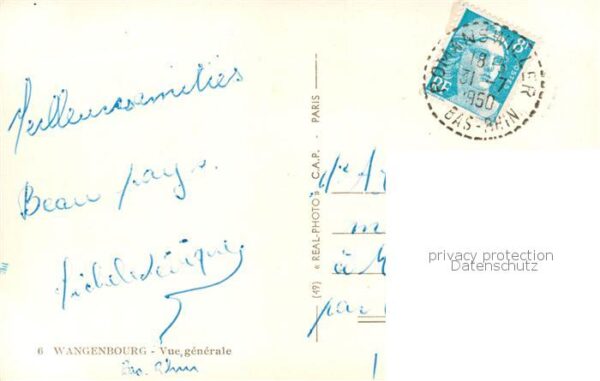 Meilleures amitiés
Beau pays.
6 WANGENBOURG - Vue générale
Bas. Rhin
(49) « REAL-PHOTO » C.A.P. - PARIS
8F
RF
ROMANSWILLER
18
31-7
1950
BAS-RHIN
à
par
privacy protection
Datenschutz